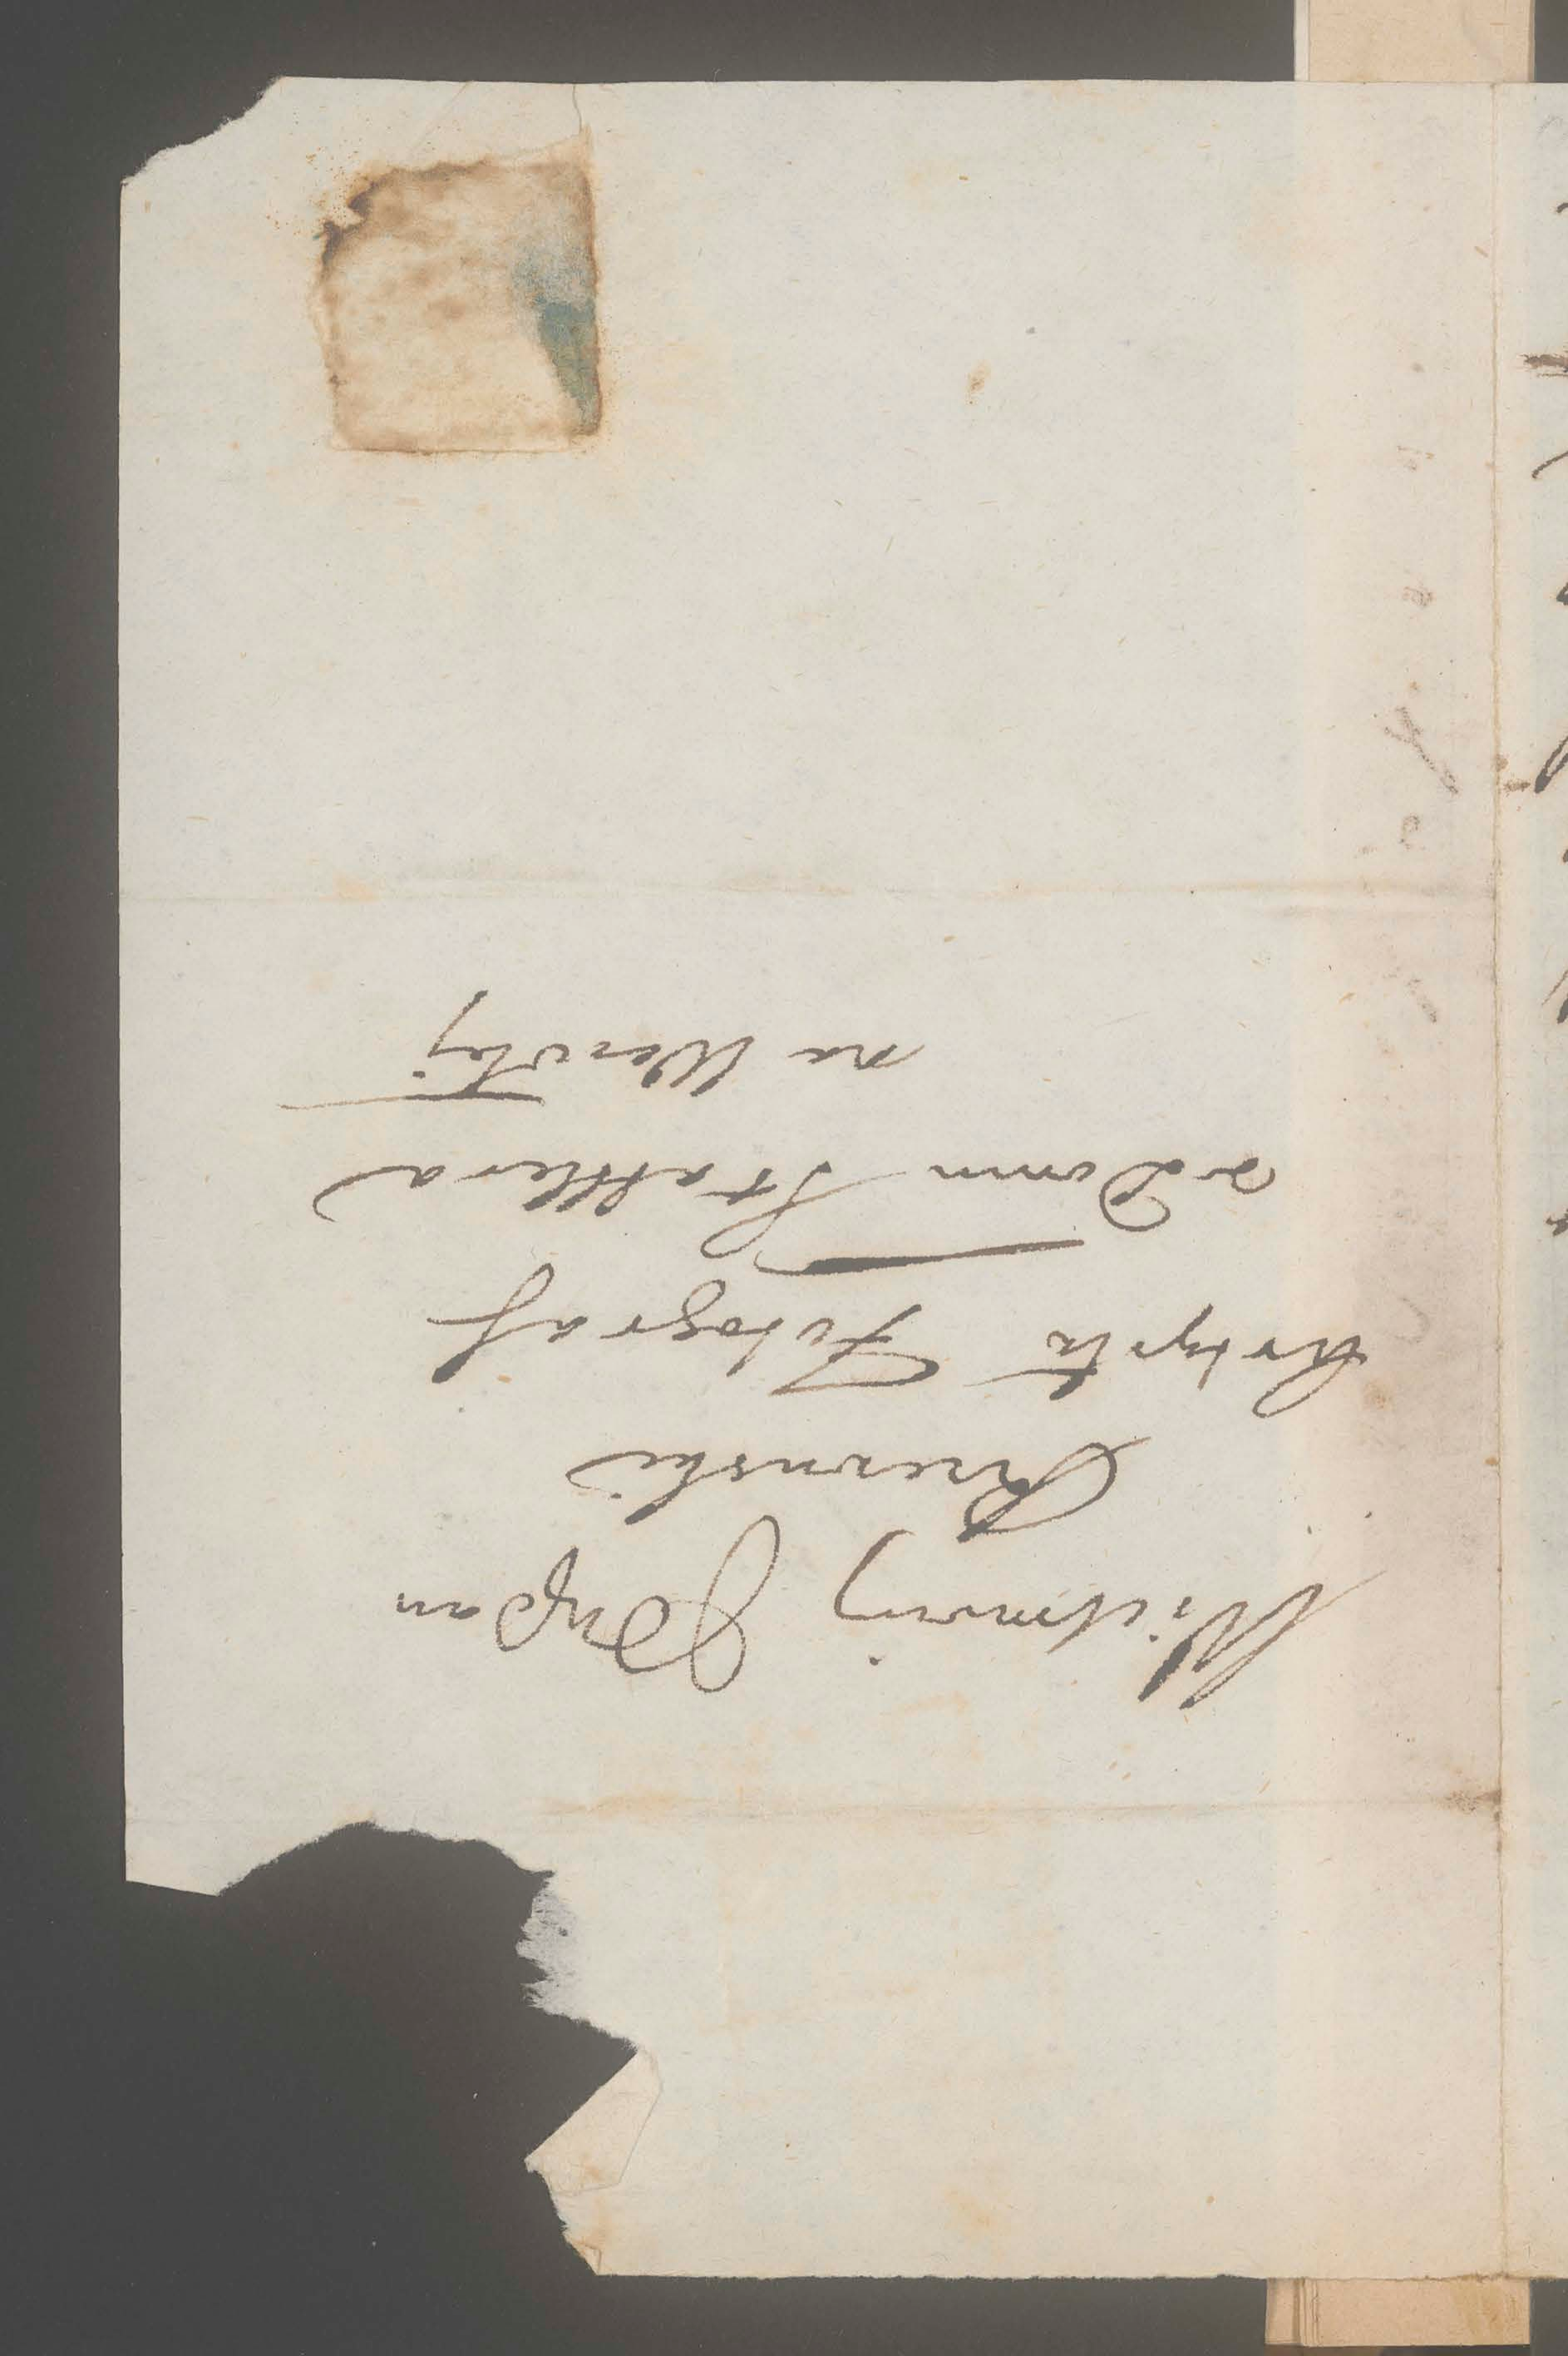 Wielmożny JPan
Rzewuski
Artysta Fotograf
w Domu Stattlera
na Wesołej